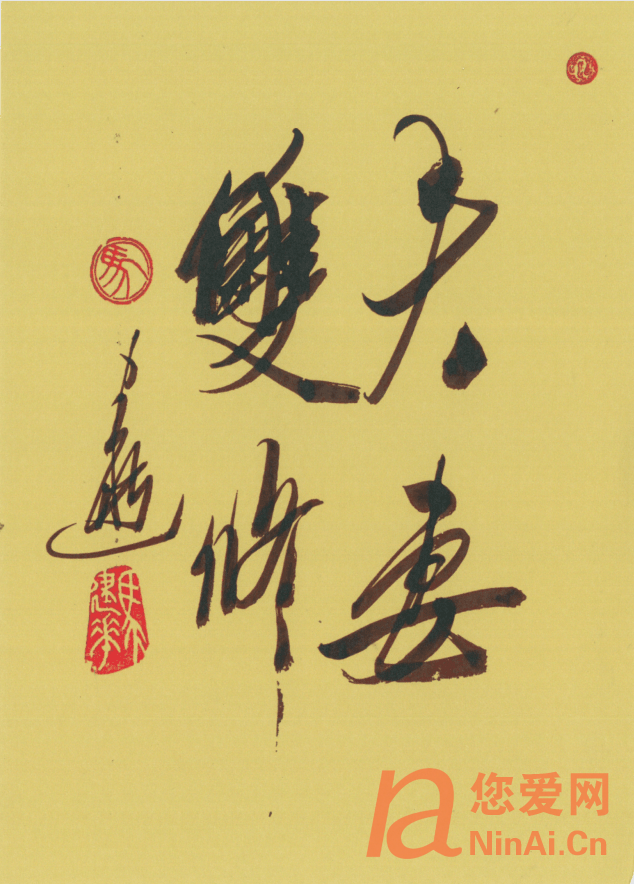 夫妻
雙修
馬
您爱网
NinAi.Cn